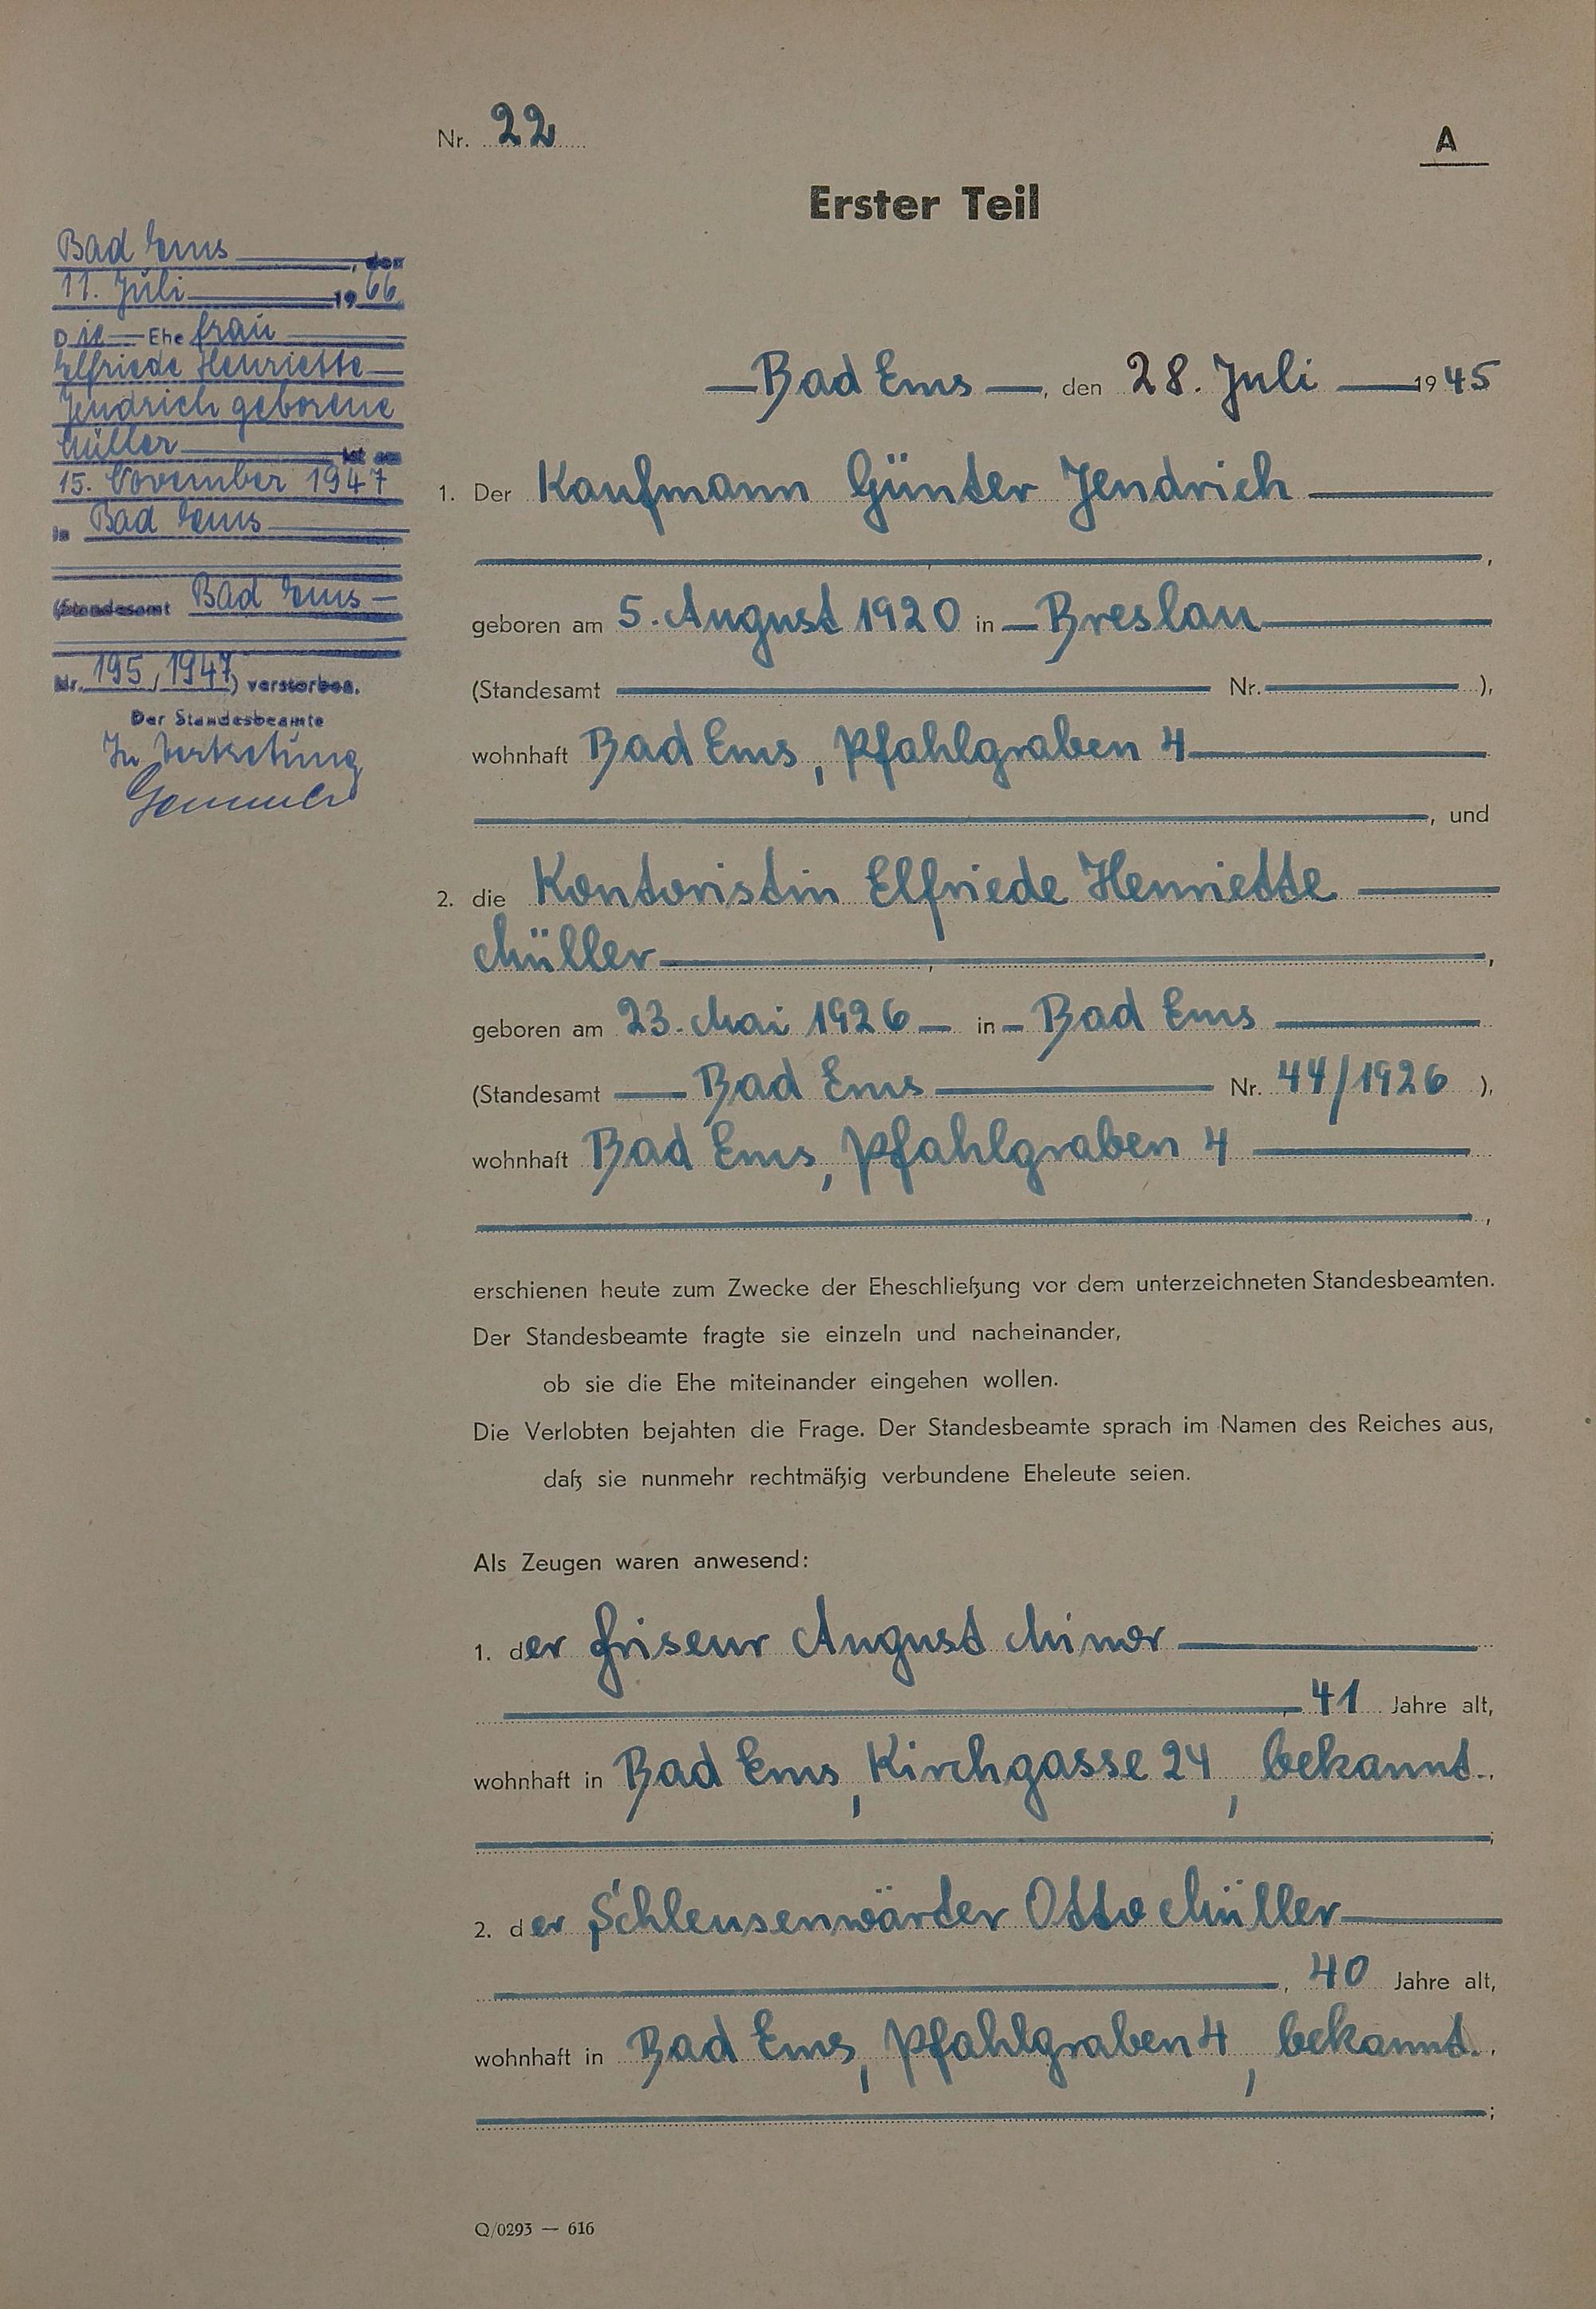 Nr. 22
A
Erster Teil
Bad Ems, den
11. Juli 1966
Die Ehefrau
Elfriede Henriette
Jendrich geborene
Müller ist am
15. November 1947
in Bad Ems
(Standesamt Bad Ems
Nr. 195/1947) verstorben.
Der Standesbeamte
In Vertretung
Bad Ems, den 28. Juli 1945
1. Der Kaufmann Günter Jendrich
,
geboren am 5. August 1920 in Breslau
(Standesamt Nr. ),
wohnhaft Bad Ems, Pfahlgraben 4
, und
2. die Kontoristin Elfriede Henriette
Müller,
geboren am 23. Mai 1926 in Bad Ems
(Standesamt Bad Ems Nr. 44/1926 ),
wohnhaft Bad Ems, Pfahlgraben 4
,
erschienen heute zum Zwecke der Eheschließung vor dem unterzeichneten Standesbeamten.
Der Standesbeamte fragte sie einzeln und nacheinander,
ob sie die Ehe miteinander eingehen wollen.
Die Verlobten bejahten die Frage. Der Standesbeamte sprach im Namen des Reiches aus,
daß sie nunmehr rechtmäßig verbundene Eheleute seien.
Als Zeugen waren anwesend:
1. der Friseur August Minor
41 Jahre alt,
wohnhaft in Bad Ems, Kirchgasse 24, bekannt.
;
2. der Schleusenwärter Otto Müller
, 40 Jahre alt,
wohnhaft in Bad Ems, Pfahlgraben 4, bekannt.
;
Q/0293 — 616